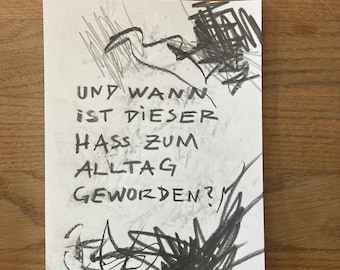 UND WANN
IST DIESER
HASS ZUM
ALLTAG
GEWORDEN?!